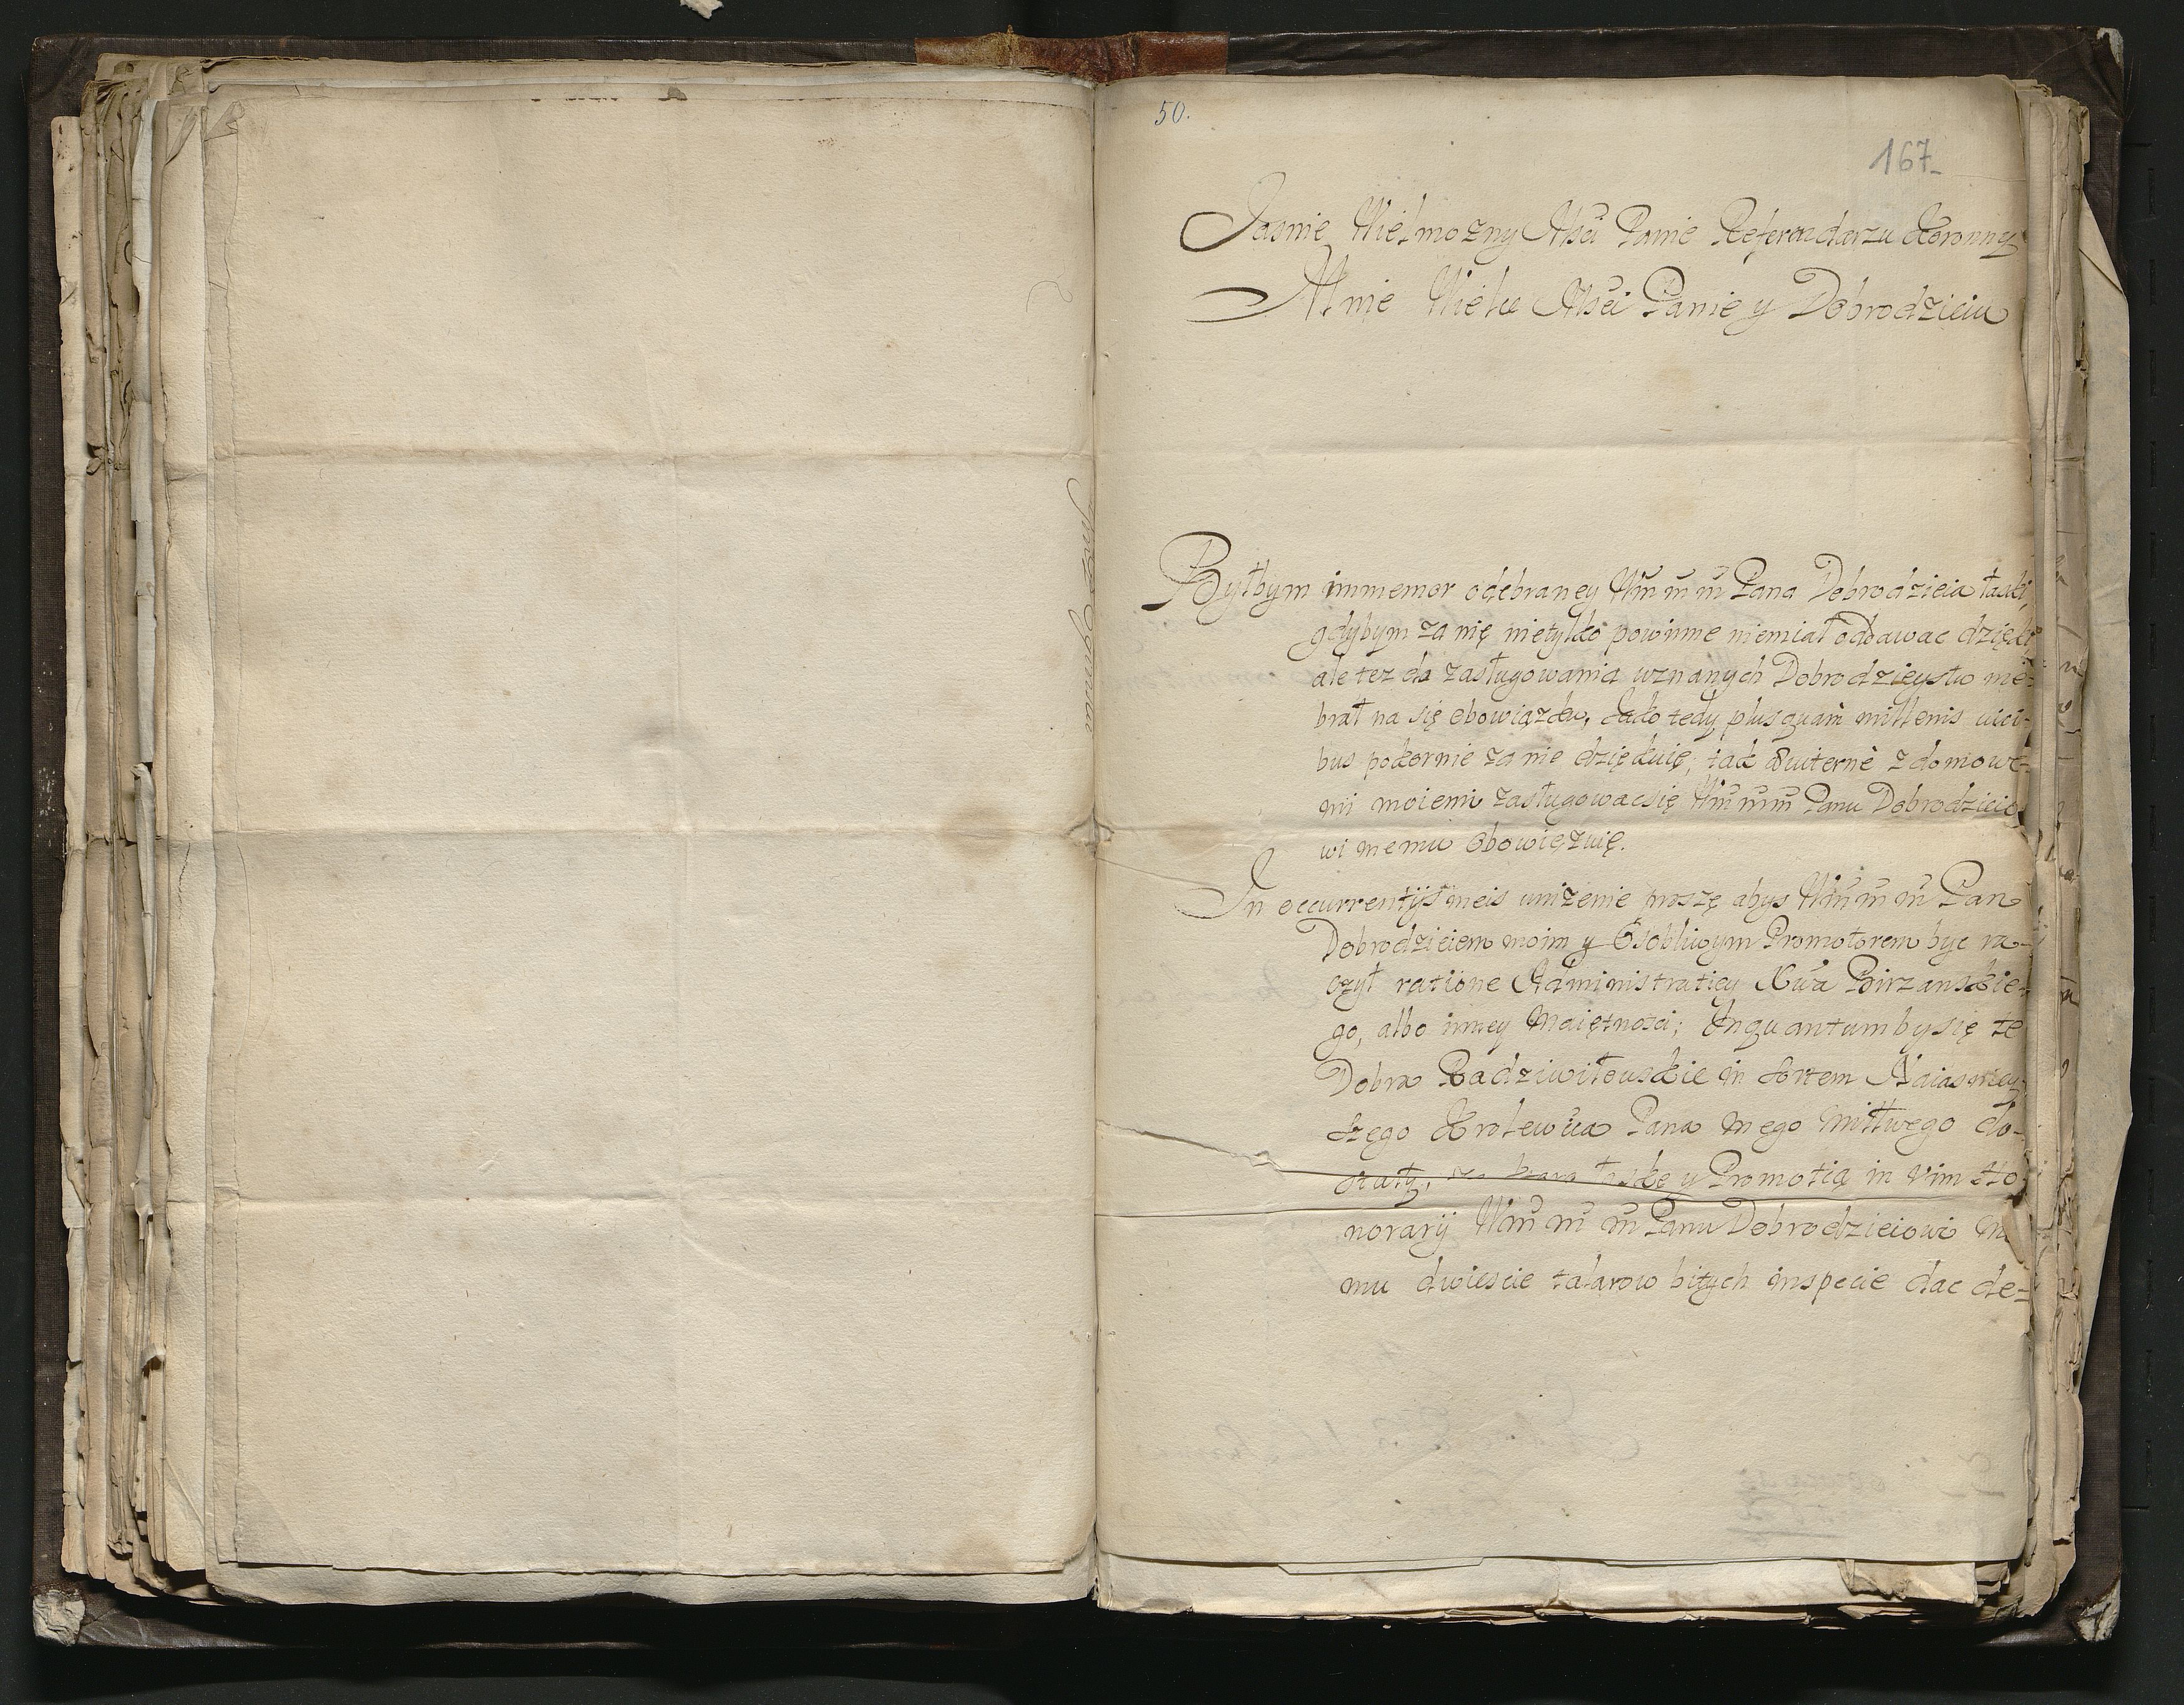 50.
167
Jasnie Wielmozny Msci Panie Referendarzu Koronny
Mnie Wielce Msci Panie y Dobrodzieiu
Byłbym immemor odebraney Wm m m Pana Dobrodzieia łaski,
gdybym za nię nietylko powinne niemiał oddawac dzięki
ale tez do zasługowania wznanych Dobrodzieystw nie-
brał na się obowiązku. Jako tedy plusquam millenis vici-
bus pokornie za nie dziękuię; tak sviternè z domowe-
mi moiemi zasługowac się Wm m m Panu Dobrodzieio
wi memu obowięzuię.
In occurrentijs meis unizenie proszę abys Wm m m Pan
Dobrodzieiem moim y Osobliwym Promotorem byc ra-
czył ratione Administratiey Xwa Birzanskie-
go, albo inney Maiętnosci; Inquantum by się te
Dobra Radziwiłowskie in sortem Naiasniey-
szego Krolewica Pana mego Miłłwego do-
stały, za łaskę y Promotią in vim Ho-
norarij Wm m m Panu Dobrodzieiowi me
mu dwiescie talarow bitych inspecie dac de-